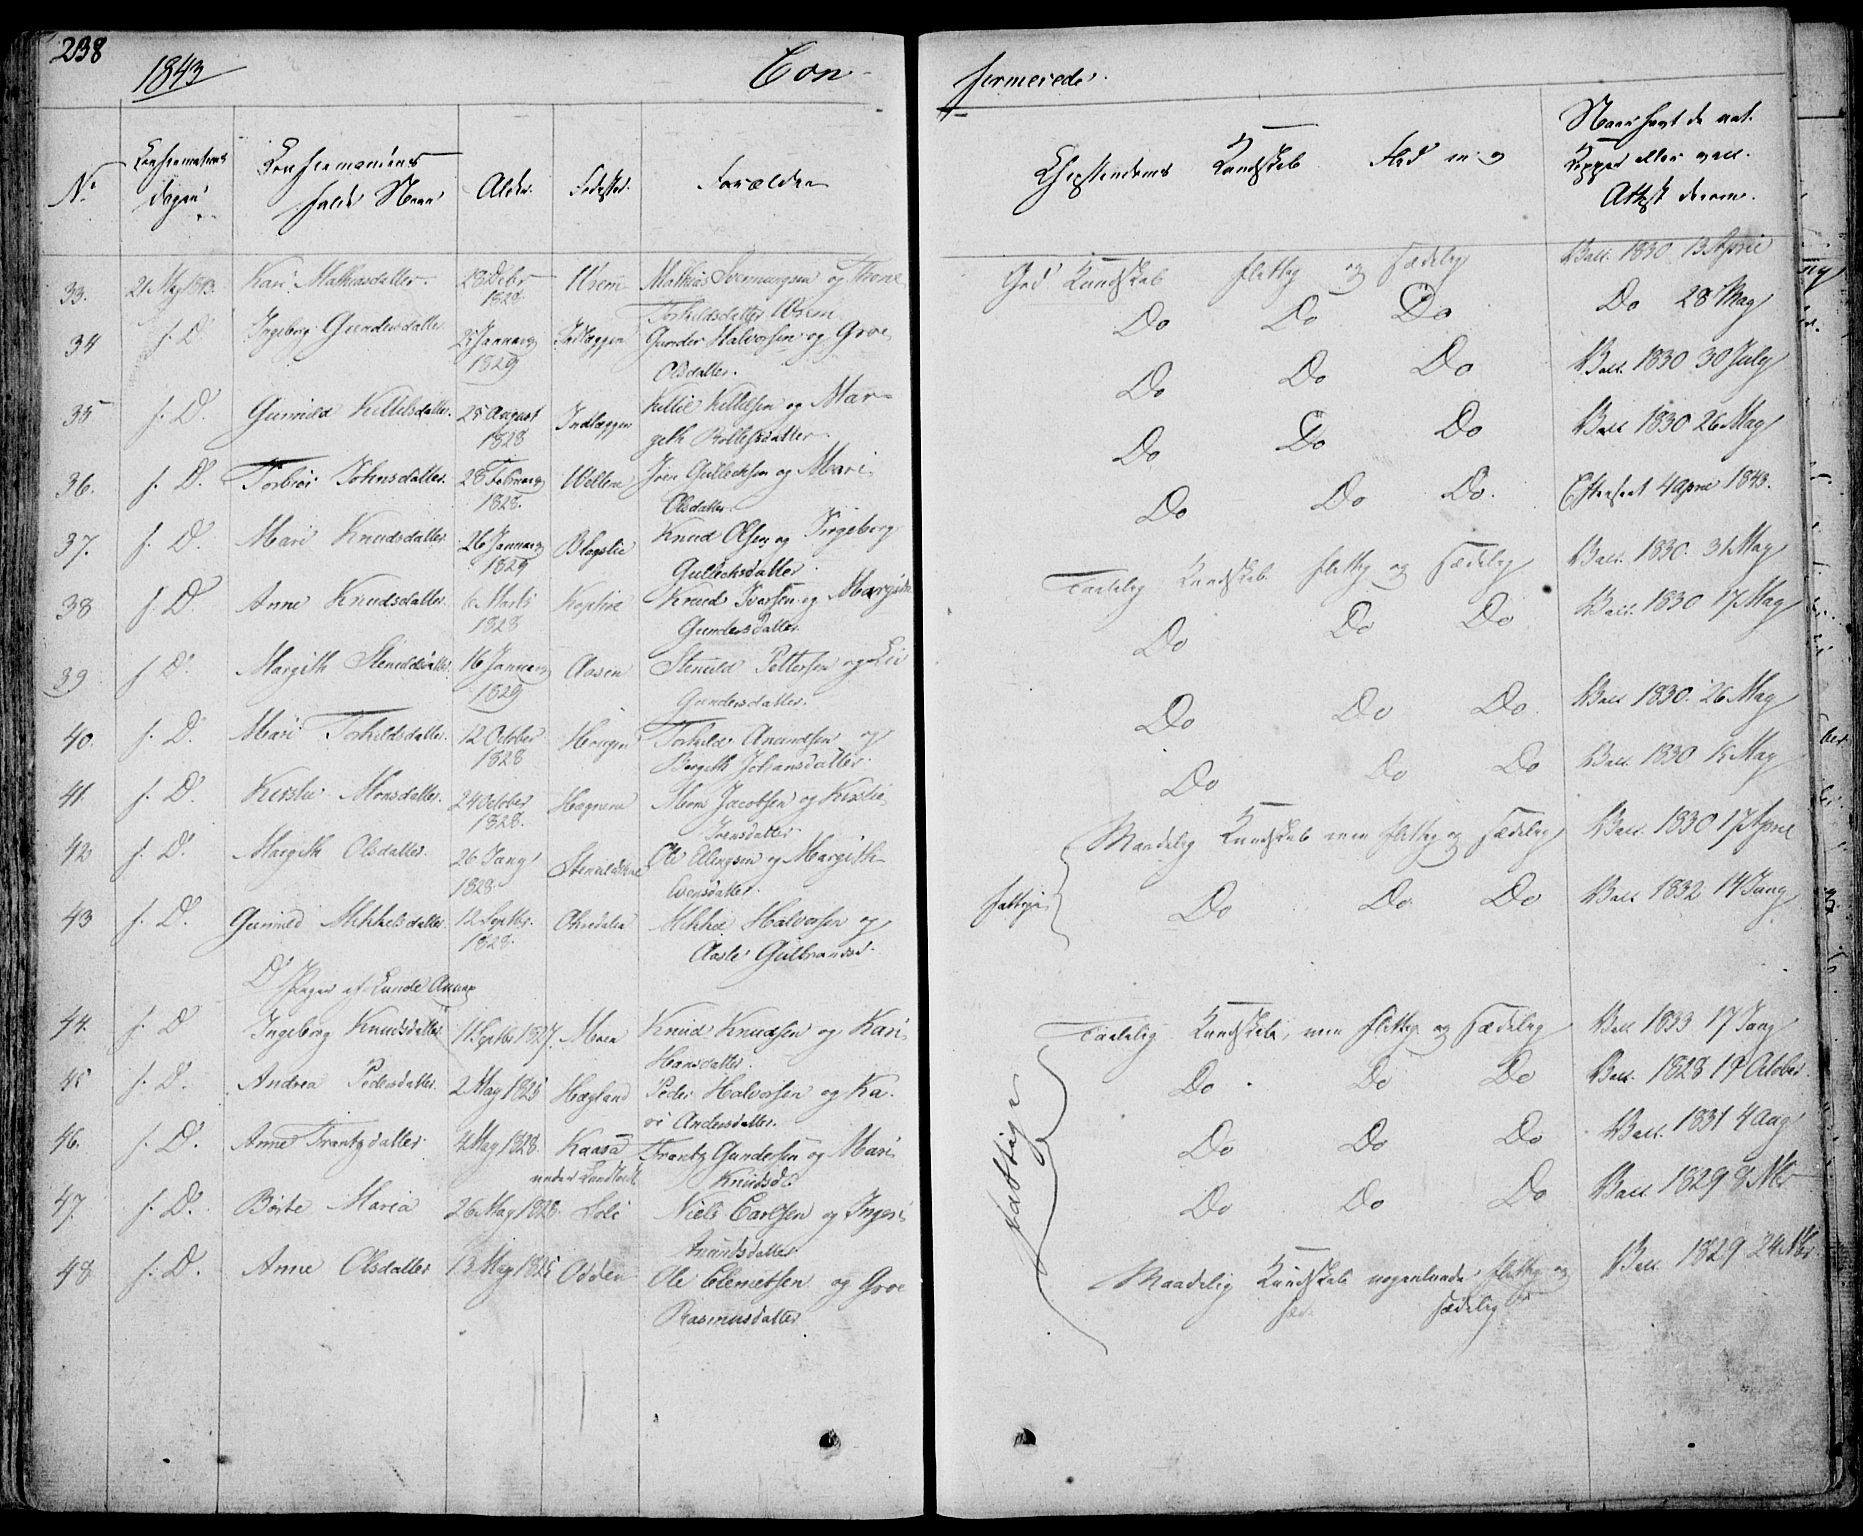 238
1843 Con- firmerede.
No Confirmations Dagen Confirmandens fulde Navn Alder Fødested Forældre Christendoms Kundskab Flid Naar havt de nat. Kopper eller vacc. Attest derom.
33. 21 May 1843. Kari Mathiasdatter. 18 Octbr 1828 Wrem Mathias og Thone God Kundskab flittig og sædelig Vacc. 1830 13 April
Torkildsdatter Wrem
34 s. D. Ingeborg Gundersdatter 25 January 1829 Indlæggen Gunder Halvorsen og Groe Do Do Do Do 28 May
Olsdatter.
35 s. D. Gunnild Kittelsdatter. 25 August 1828 Indlæggen Kittil Kittilsen og Mar- Do Do Do Vacc. 1830 30 July
geth Rollefsdatter
36. s. D. Torbiør Johnsdatter. 28 February 1828. Wellem Gullechsen og Mari Do Do Do Vacc. 1830 26 May
Olsdatter
37. s. D. Mari Knudsdatter 26 January 1829 Bløgslie Knud Olsen og Ingeborg Do Do Do. 4 April 1843.
Gullechsdatter.
38 s. D. Anne Knudsdatter 6 Marts 1828 Knud Ivarsen og Margith Taalelig Kundskab flittig og sædelig Vacc. 1830. 31 May
Gundersdatter
39 s. D. Margith Stenuldsdatter 16 January 1829 Aasen Stenuld Pettersen og Liv Do Do Do Vacc. 1830 17 May
Gundersdatter.
40. s. D. Mari Torkildsdatter. 12 October 1828 Torkild Anundsen og Do Do Do. Vacc. 1830. 26 May
Bergith Johansdatter.
41. s. D. Kirstie Monsdatter. 24 October 1828. Haegnene Mons Jacobsen og Kirstie Do Do Do Vacc. 1830 15 May
Ivensdatter
42 s. D. Margith Olsdatter. 26 Jany 1828 Ole Ellingsen og Margith Maadelig Kundskab men flittig og sædelig Vacc. 1830 17 April
Evensdatter.
43 s. D. Gunnild Mikkelsdatter 12 Septbr. 1828. Mikkel Halvorsen og fattige Do Do. Do Vacc. 1832 14 Jany
Aasle Gulbrandsd.
D Piger af Lunde Annex
44. s. D Ingeborg Knudsdatter 11 Septbr 1827. Moen Knud Knudsen og Kari Taalelig Kundskab, men flittig og sædelig Vacc. 1833 17 Jany
Hansdatter.
45 s. D. Andrea Pedersdatter. 2 May 1825 Hægland Peder Halvorsen og Ka- Do Do Do Vacc. 1828 19 October.
ri Andersdatter.
46. s. D. Anne Frantzdatter. 4 May 1828. Kaasa Frantz Gundersen og Mari fattige Do Do Do Vacc. 1831 4 Aug
under Knudsd.
47. s. D. Børte Maria 26 May 1828. Soli Niels Carlsen og Ingeri Do Do Do Vacc. 1829 8 Nbr
Anundsdatter
48 s. D. Anne Olsdatter 13 May 1825 Odden Ole Clemetsen og Groe Maadelig Kundskab nogenlunde flittig og Vacc. 1829 24 Nbr
Rasmusdatter sædelig